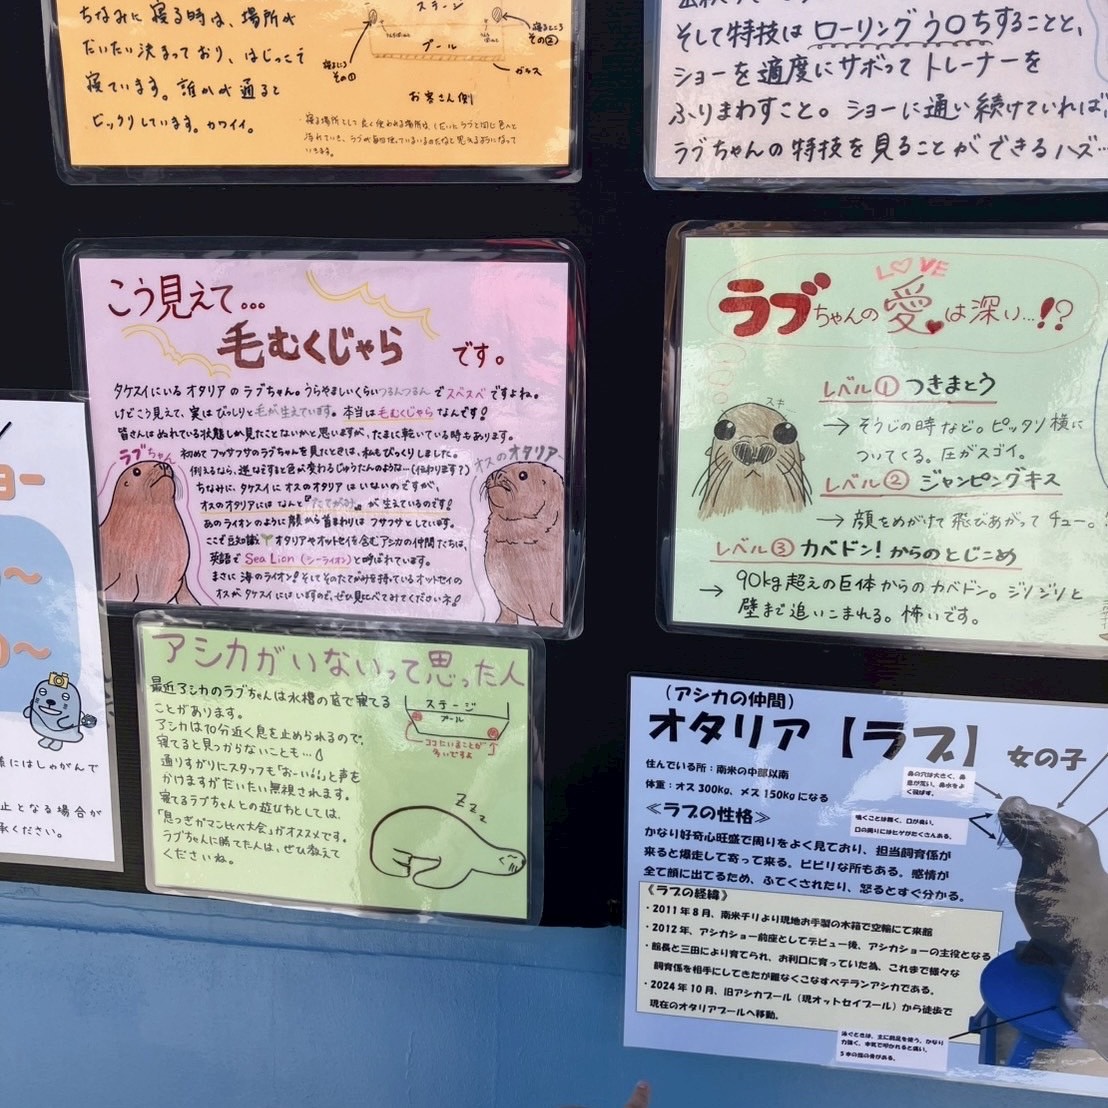 ちなみに寝る時は、場所が
だいたい決まっており、はじっこで
寝ています。誰かが通ると
ビックリしています。カワイイ。
ステージ
プール
ガラス
お客さん側
寝るところ
その②
寝るところ
その①
そして特技はローリングう〇ちすることと、
ショーを適度にサボってトレーナーを
ふりまわすこと。ショーに通い続けていれば
ラブちゃんの特技を見ることができるハズ…
こう見えて…
毛むくじゃら
です。
タケスイにいるオタリアのラブちゃん。うらやましいくらいつるんつるんでスベスベですよね。
けどこう見えて、実はびっしりと毛が生えています。本当は毛むくじゃらなんです!
皆さんはぬれている状態しか見たことないかと思いますが、たまに乾いている時もあります。
ラブちゃん
初めてフッサフサのラブちゃんを見たときは、私もびっくりしました。
例えるなら、逆なですると色が変わるじゅうたんのような…(伝わります?)
オスのオタリア
ちなみに、タケスイにオスのオタリアはいないのですが、
オスのオタリアにはなんと"たてがみ"が生えているのです!
あのライオンのように顔から首まわりはフサフサとしています。
ここで豆知識 オタリアやオットセイを含むアシカの仲間たちは、
英語でSea Lion(シーライオン)と呼ばれています。
まさに海のライオン!そしてそのたてがみを持っているオットセイの
オスがタケスイにはいますので、ぜひ見比べてみてくださいネ!
LOVE
ラブちゃんの愛は深い…!?
レベル①つきまとう
スキ
→そうじの時など。ピッタリ横に
ついてくる。圧がスゴイ。
レベル②ジャンピングキス
→顔をめがけて飛びあがってチュー。
レベル③カベドン!からのとじこめ
→90kg超えの巨体からのカベドン。ジリジリと
壁まで追いこまれる。怖いです。
ョー
〜
〜
様にはしゃがんで
止となる場合が
承ください。
アシカがいないって思った人
最近アシカのラブちゃんは水槽の底で寝てる
ことがあります。
アシカは10分近く息を止められるので、
寝てると見つからないことも…
通りすがりにスタッフも「おーい」と声を
かけますがだいたい無視されます。
寝てるラブちゃんとの遊びかたとしては、
「息つぎガマン比べ大会」がオススメです。
ラブちゃんに勝てた人は、ぜひ教えて
くださいね。
ステージ
プール
ココにいることが
多いですよ
ZZZ
(アシカの仲間)
オタリア【ラブ】女の子
住んでいる所:南米の中部以南
体重:オス300kg、メス150kgになる
≪ラブの性格≫
かなり好奇心旺盛で周りをよく見ており、担当飼育係が
来ると爆走して寄って来る。ビビリな所もある。感情が
全て顔に出てるため、ふてくされたり、怒るとすぐ分かる。
《ラブの経緯》
・2011年8月、南米チリより現地お手製の木箱で空輸にて来館
・2012年、アシカショー前座としてデビュー後、アシカショーの主役となる
・館長と三田により育てられ、お利口に育っていた為、これまで様々な
飼育係を相手にしてきたが難なくこなすベテランアシカである。
・2024年10月、旧アシカプール(現オットセイプール)から徒歩で
現在のオタリアプールへ移動。
口の周りにはヒゲがたくさんある。
泳ぐときは、主に前足を使う。かなり
力強く、本気で叩かれると痛い。
5本の指の骨がある。